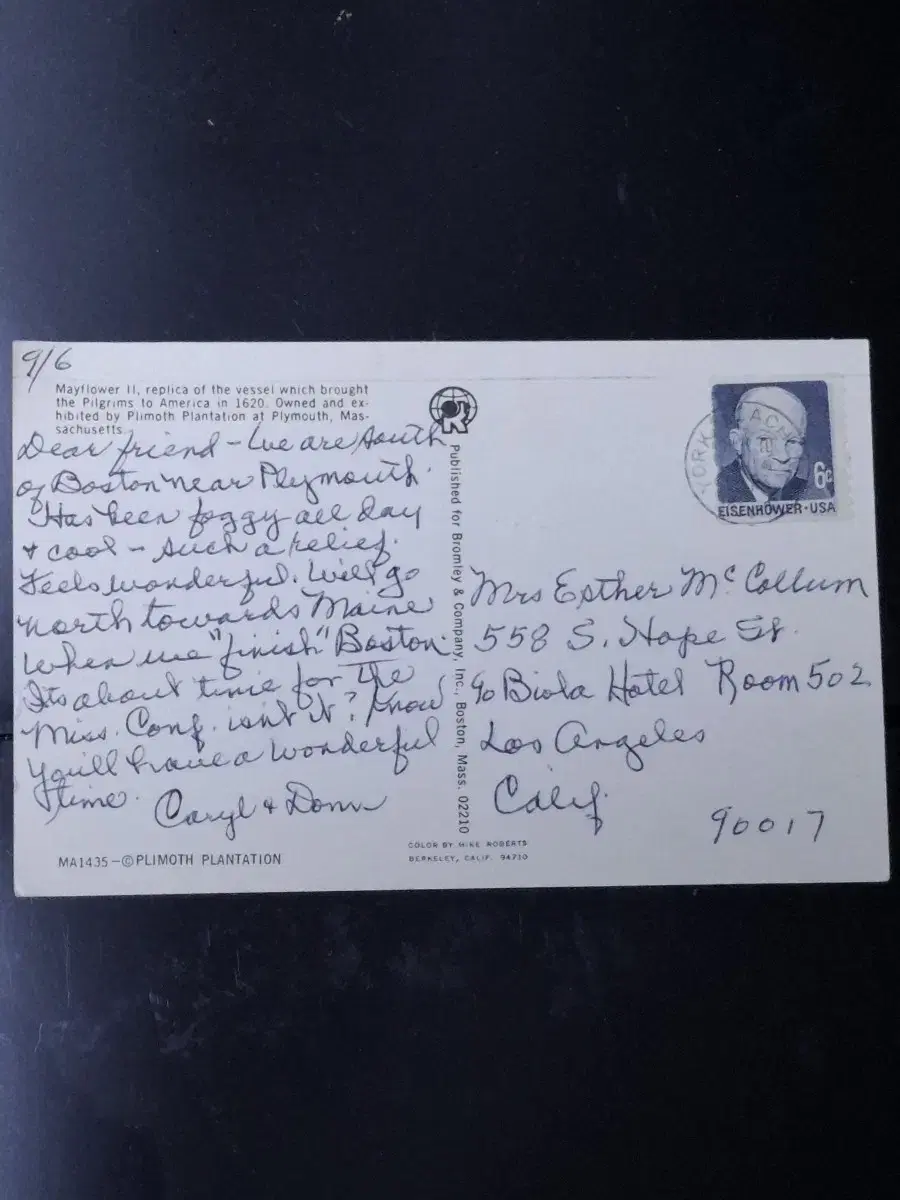 9/6
Mayflower II, replica of the vessel which brought
the Pilgrims to America in 1620. Owned and ex-
hibited by Plimoth Plantation at Plymouth, Mas-
sachusetts.
Dear friend - We are South
of Boston near Plymouth.
Has been foggy all day
& cool - such a relief.
Feels wonderful. Will go
north towards Maine
when we "finish" Boston.
Its about time for the
Miss. Conf. isn't it? Know
you'll have a wonderful
time.
Caryl & Donn
MA1435-©PLIMOTH PLANTATION
R
Published for Bromley & Company, Inc., Boston, Mass. 02210
COLOR BY MIKE ROBERTS
BERKELEY, CALIF. 94710
YORK BEACH
6c
EISENHOWER·USA
Mrs Esther McCollum
558 S. Hope St.
c/o Biola Hotel Room 502
Los Angeles
Calif.
90017